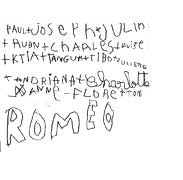 PAUL+JOSEPH+JULIA
+RUBN+CHARLES+LOUISE
+KTIA+TANGUY+TIBO+JULIETTE
+ANDRIANA+Charlotte
ANNE-FLORE+TOM
ROMEO